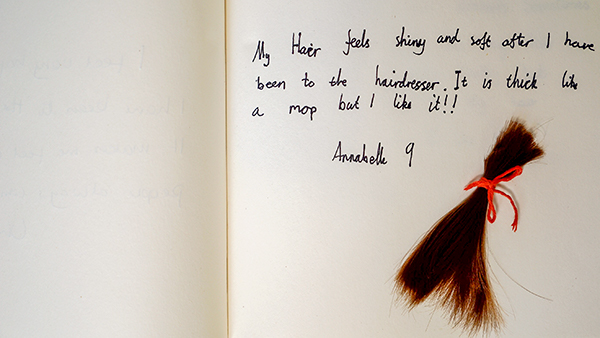 My Hair feels shiny and soft after I have
been to the hairdresser. It is thick like
a mop but I like it!!
Annabelle 9